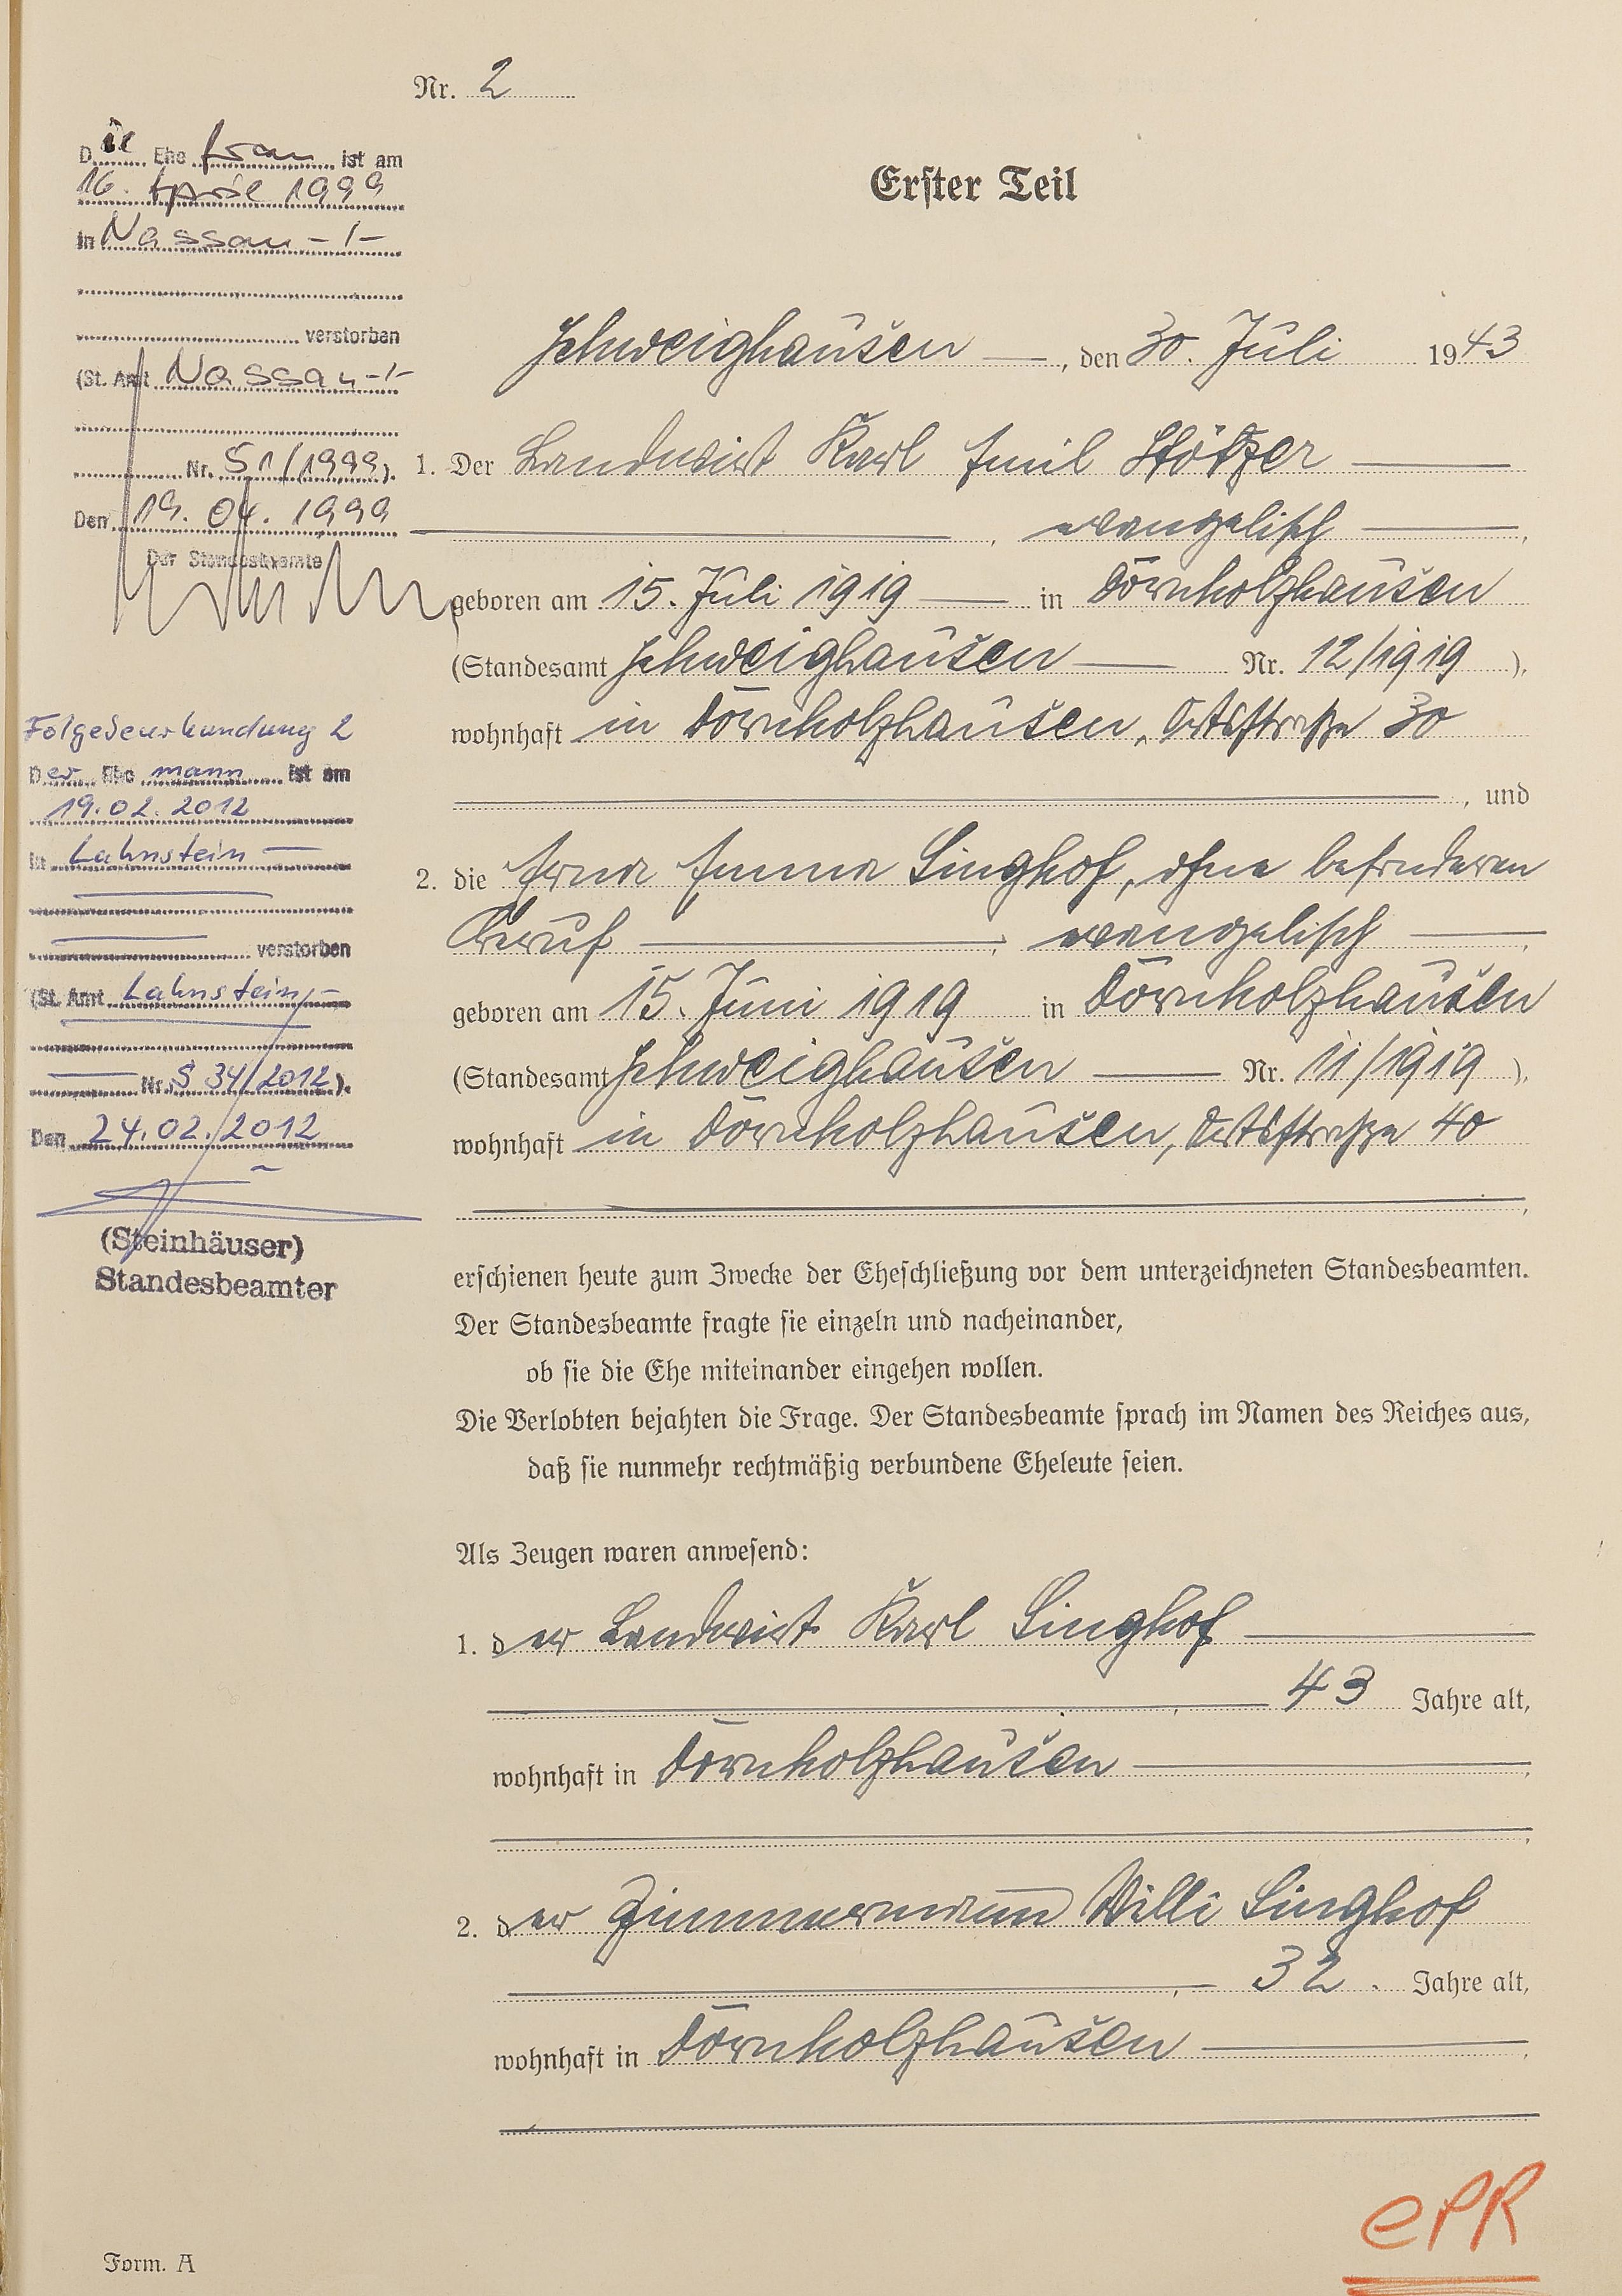 Nr. 2
Die Ehefrau ist am
16. April 1999
in Nassau -/-
verstorben
(St. Amt Nassau -/-
Nr. S1/1999).
Den 19. 04. 1999
Der Standesbeamte
Folgebeurkundung 2
Der Ehemann ist am
19.02.2012
in Lahnstein —
verstorben
(St. Amt Lahnstein, —
Nr. S 34/2012).
Den 24.02.2012
(Steinhäuser)
Standesbeamter
Erster Teil
Schweighausen —, den 30. Juli 1943
1. Der Landwirt Karl Emil Stötzer —
—, evangelisch —,
geboren am 15. Juli 1919 — in Dörnholzhausen
(Standesamt Schweighausen — Nr. 12/1919 ),
wohnhaft in Dörnholzhausen, Ortsstraße 30
—, und
2. die Erna Emma Singhof, ohne besonderen
Beruf —, evangelisch —,
geboren am 15. Juni 1919 in Dörnholzhausen
(Standesamt Schweighausen — Nr. 11/1919 ),
wohnhaft in Dörnholzhausen, Ortsstraße 40
—,
erschienen heute zum Zwecke der Eheschließung vor dem unterzeichneten Standesbeamten.
Der Standesbeamte fragte sie einzeln und nacheinander,
ob sie die Ehe miteinander eingehen wollen.
Die Verlobten bejahten die Frage. Der Standesbeamte sprach im Namen des Reiches aus,
daß sie nunmehr rechtmäßig verbundene Eheleute seien.
Als Zeugen waren anwesend:
1. der Landwirt Karl Singhof —
—, 43 Jahre alt,
wohnhaft in Dörnholzhausen —,
—,
2. der Zimmermann Willi Singhof
—, 32 Jahre alt,
wohnhaft in Dörnholzhausen —,
ePR
Form. A